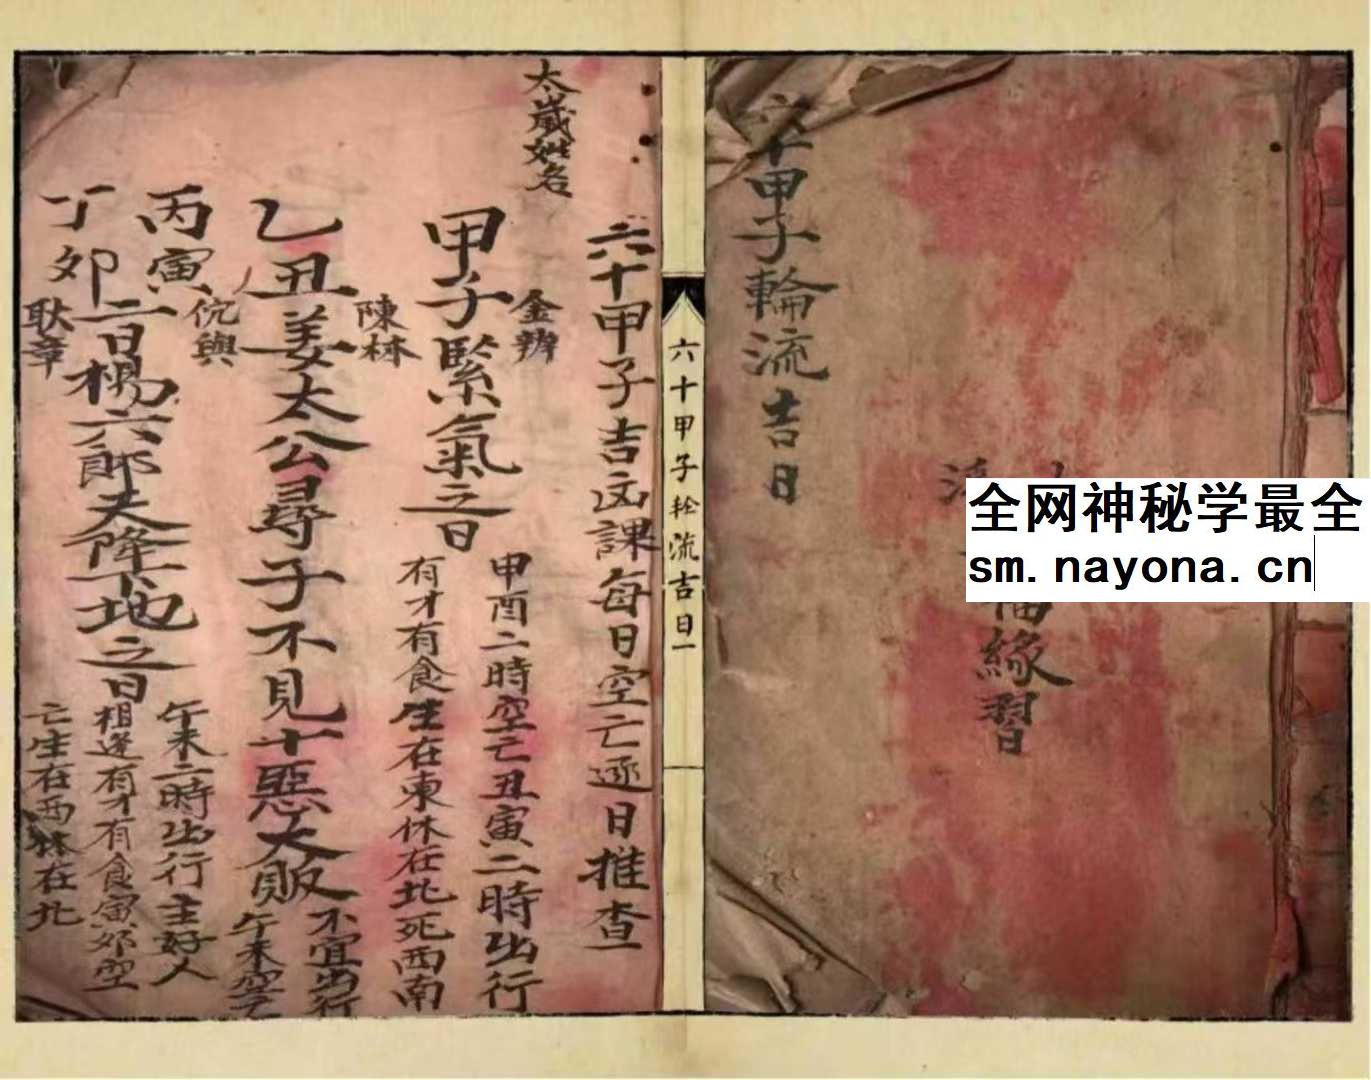 甲子輪流吉日
緣習
全网神秘学最全
sm.nayona.cn
六十甲子轮流吉日一
六十甲子吉凶課每日空亡逐日推查
太歲姓名
金辦
甲子緊氣之日
甲酉二時空亡丑寅二時出行
有才有食生在東休在北死西南
陳林
乙丑姜太公尋子不見十惡大販
不宜出行
午未空亡
丙寅
丁卯二日楊六郎夫降下地之日
伉興
耿章
午未二時出行主好人
相逢有才有食寅卯空
亡生在西林在北